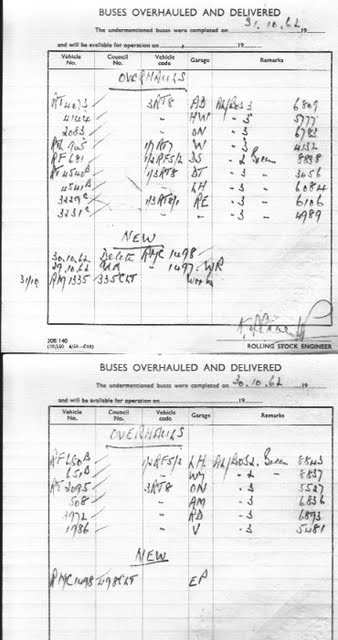 BUSES OVERHAULED AND DELIVERED
The undermentioned buses were completed on 31.10.62 19
and will be available for operation on 19
Vehicle No. Council No. Vehicle code Garage Remarks
OVERHAULS
RT 4073 3RT8 AD 3 6809
4144 " HW - 3 5777
2083 " ON - 3 6783
945 1/1RT7 W - 3 4132
RF 681 1/2RF5/2 DS - 2 Green 8898
RT 4540B 1/3RT8 DT - 3 3456
4541B " LH - 3 6084
3229C 1/3RT8/1 RE - 3 6106
3231C " " - 3 4989
NEW
30.10.62 Delete RMC 1498
29.10.62 " 1497 WR
31/10 RM 1335 335CLT Works
ROLLING STOCK ENGINEER
BUSES OVERHAULED AND DELIVERED
The undermentioned buses were completed on 30.10.62 19
and will be available for operation on 19
Vehicle No. Council No. Vehicle code Garage Remarks
OVERHAULS
RF 650B 1/2RF5/2 LH Green 8543
651B " WY - 2 " 8837
RT 2095 3RT8 ON - 3 5527
508 " AM - 3 6836
3972 " RD - 3 6893
1986 " V - 3 5481
NEW
RMC 1498 498CLT EP